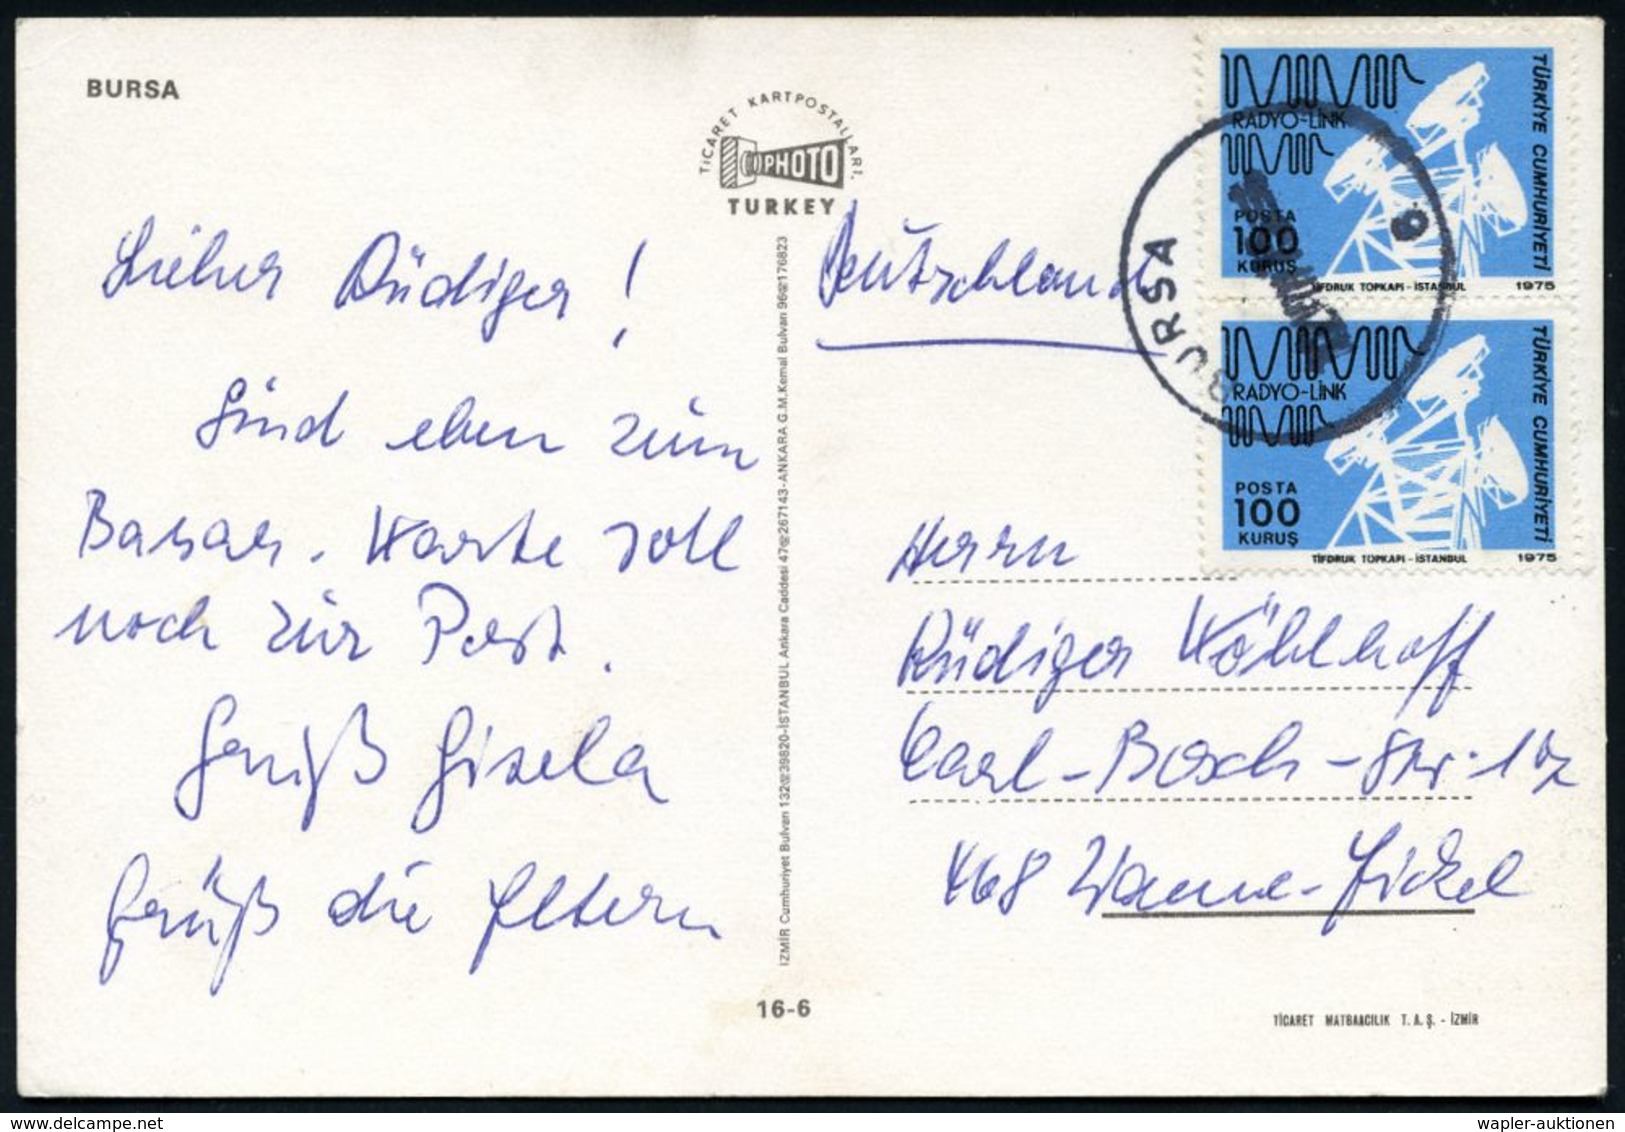 BURSA
TİCARET KARTPOSTALLARI.
PHOTO
TURKEY
Lieber Rüdiger!
Sind eben zum
Basar. Karte soll
noch zur Post.
Gruß Gisela
Grüß die Eltern
İZMİR Cumhuriyet Bulvarı 132 39820-İSTANBUL Ankara Caddesi 47 267143-ANKARA G.M.Kemal Bulvarı 96 176823
16-6
Deutschland
Herrn
Rüdiger Wöhlhoff
Carl-Bosch-Str.
468 Wanne-Eickel
TİCARET MATBAACILIK T.A.Ş. - İZMİR
RADYO-LİNK
POSTA
100
KURUŞ
TÜRKİYE CUMHURİYETİ
TİFDRUK TOPKAPI - İSTANBUL 1975
BURSA 6
RADYO-LİNK
POSTA
100
KURUŞ
TÜRKİYE CUMHURİYETİ
TİFDRUK TOPKAPI - İSTANBUL 1975
wapler-auktionen
delcampe.net